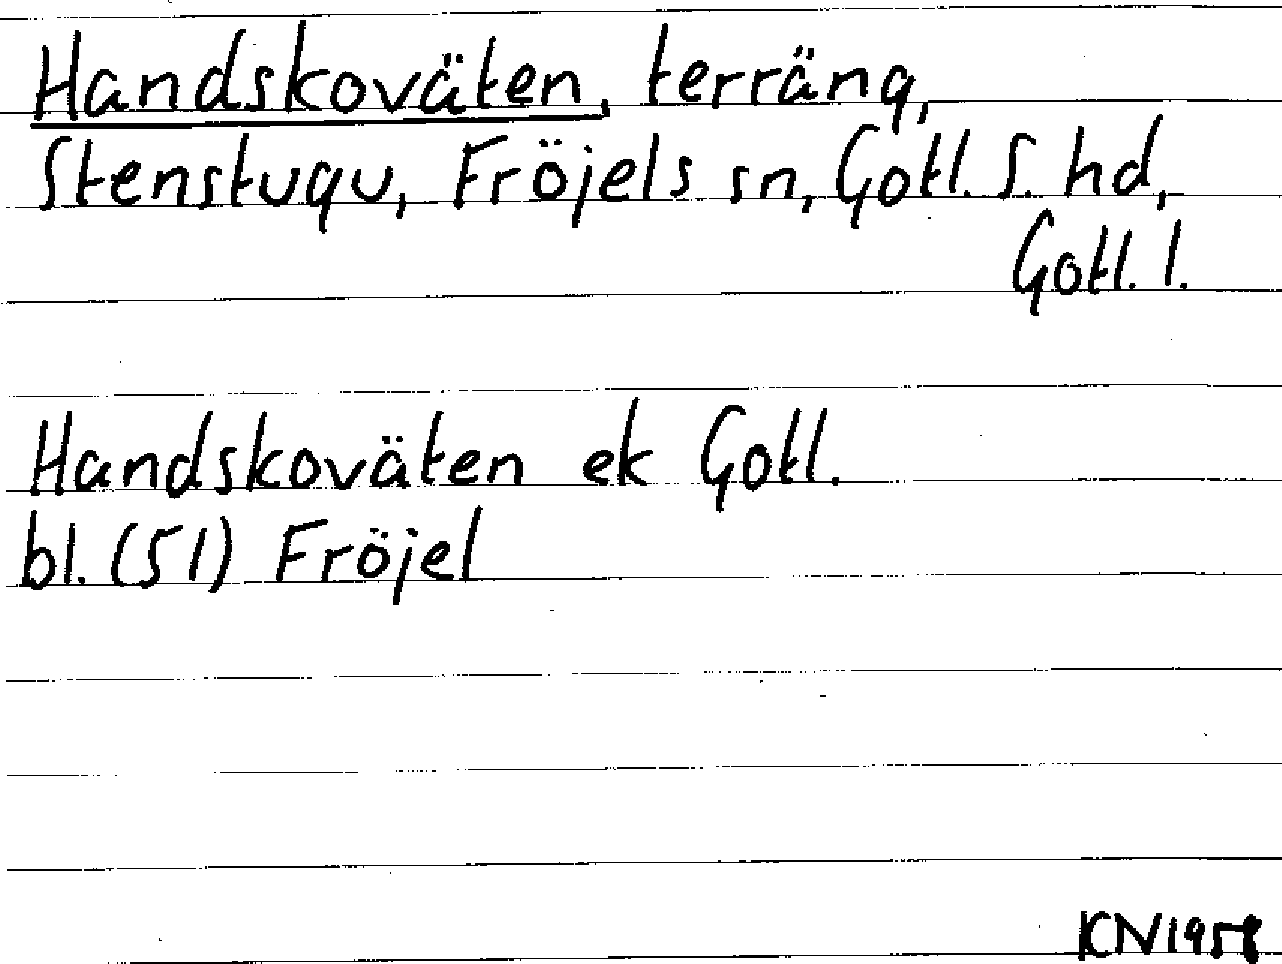 Handskoväten, terräng,
Stenstugu, Fröjels sn, Gotl. S. hd,
Gotl. l.
Handskoväten ek Gotl.
bl. (51) Fröjel
KN 1958